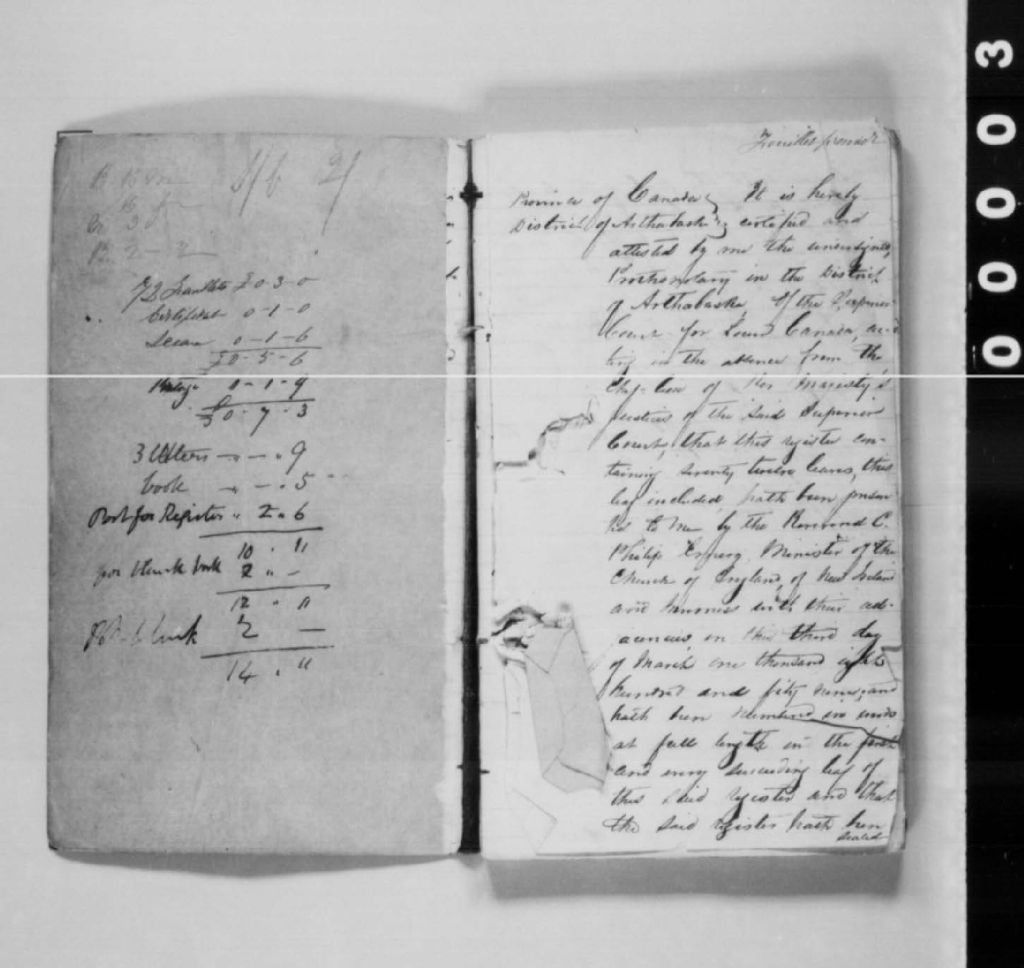 £ 0-3-0
Certificat 0-1-0
0-1-6
£0-5-6
1-9
£0-7-3
3 letters - - 9
book - - 5
Post for Register " 2 " 6
10 " 11
for blank book 2 " -
12 " 11
2 -
14 " 11
Feuillet premier
Province of Canada } It is hereby
District of Arthabaska } certified and
attested by me the undersigned
Prothonotary in the District
of Arthabaska, of the Superior
Court for Lower Canada, ac-
ting in the absence from the
Chef-lieu of Her Majesty's
justices of the said Superior
Court, that this register con-
taining seventy twelve leaves, this
leaf included, hath been presen
ted to me by the Reverend C.
Philip Minister of the
Church of England, of New Ireland
and Inverness with their ad-
jacencies, on this third day
of March one thousand eight
hundred and fifty nine, and
hath been numbered in words
at full length in the first
and every succeeding leaf of
this said register and that
the said register hath been
sealed
0003